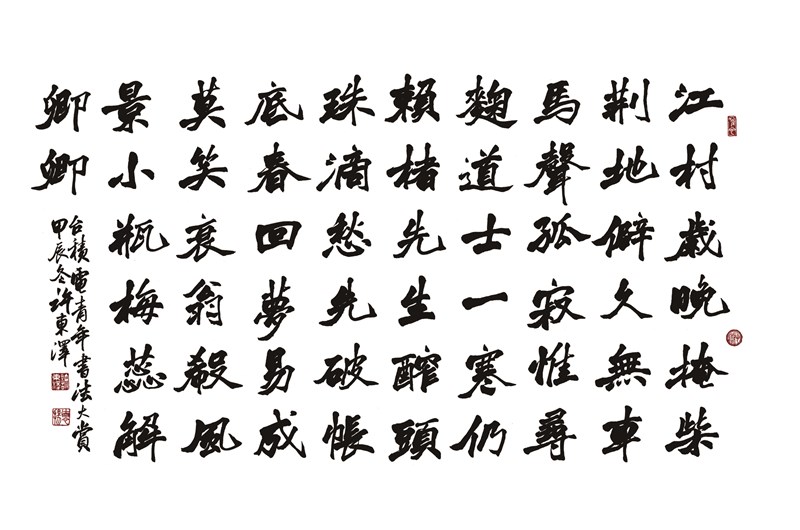 江村歲晚掩柴
荆地僻久無車
馬聲孤寂惟尋
麴道士一寒仍
賴楮先生醡頭
珠滴愁先破帳
底春回夢易成
莫笑衰翁殺風
景小瓶梅蕊解
卿卿
台積電青年書法大賞
甲辰冬許東澤